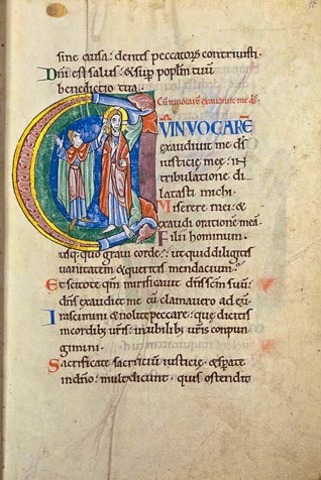 sine causa: dentes peccatorū contriuisti·
Dn̄i est salus: & sup̄ popl̄m tuū
benedictio tua·
Cū inuocarē exaudiuit me d̄s
CVM INVOCARĒ
exaudiuit me d̄s
iusticię meę: in
tribulatione di
latasti michi·
Miserere mei: &
exaudi orationē meā·
Filii hominum
usq; quo graui corde: ut quid diligitis
uanitatem & queritis mendacium·
Et scitote qm̄ mirificauit dn̄s sc̄m suū:
dn̄s exaudiet me cū clamauero ad eū·
Irascimini & nolite peccare: quę dicitis
in cordib; ur̄is: in cubilib; ur̄is conpun
gimini·
Sacrificate sacrificiū iusticię & sperate
in dn̄o: multi dicunt· quis ostendit